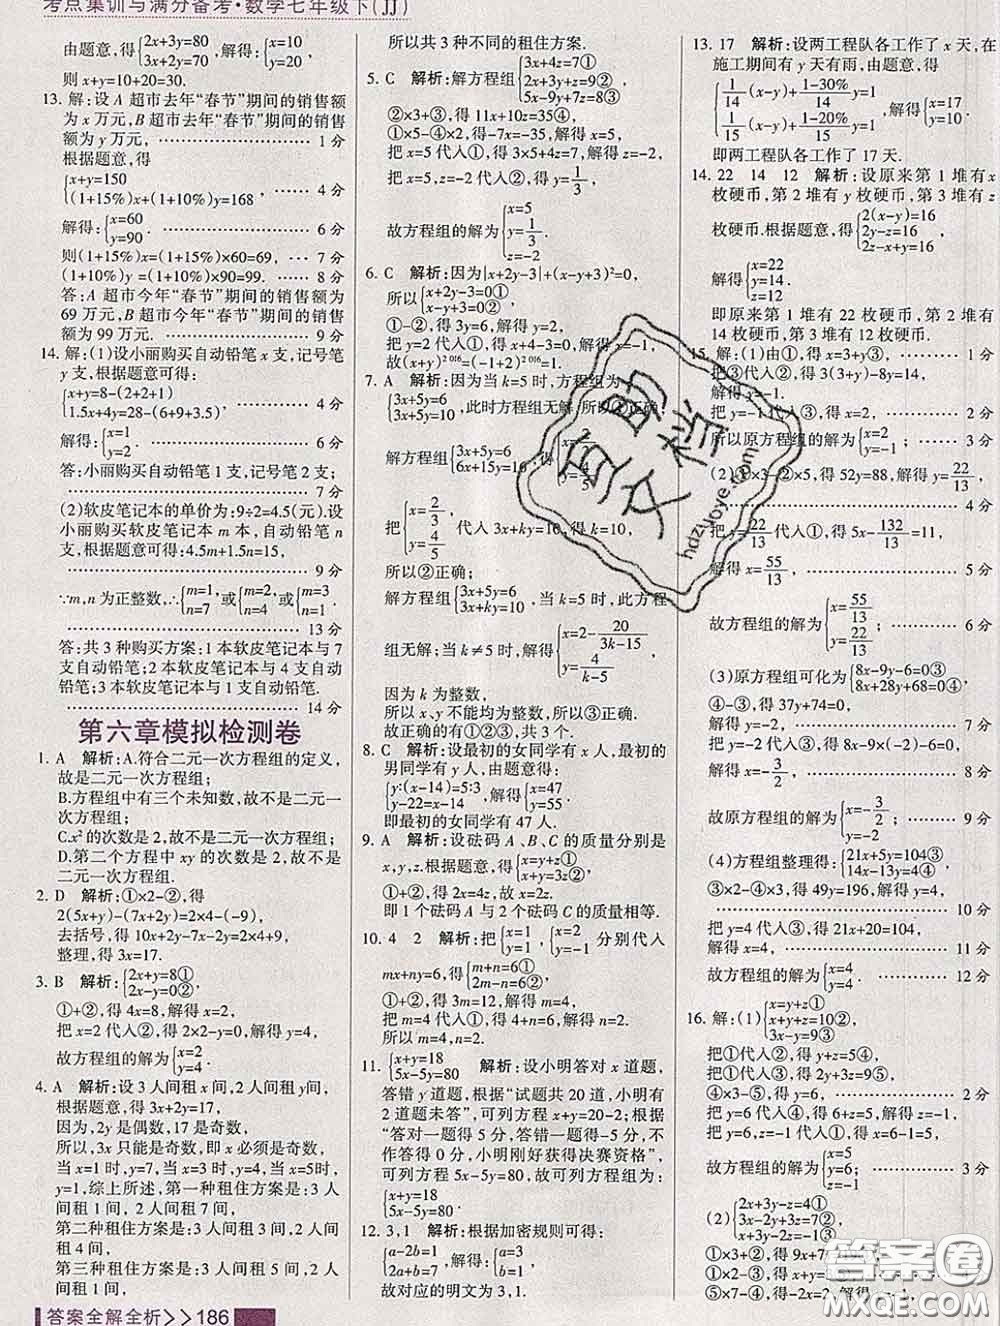 考点集训与满分备考·数学七年级下(JJ)
由题意,得{2x+3y=80 3x+2y=70,解得:{x=10 y=20,
则 x+y=10+20=30.
13. 解:设 A 超市去年“春节”期间的销售额
为 x 万元,B 超市去年“春节”期间的销售
额为 y 万元. 1 分
根据题意,得
{x+y=150 (1+15%)x+(1+10%)y=168, 4 分
解得:{x=60 y=90. 6 分
则(1+15%)x=(1+15%)×60=69, 7 分
(1+10%)y=(1+10%)×90=99. 8 分
答:A 超市今年“春节”期间的销售额为
69 万元,B 超市今年“春节”期间的销售
额为 99 万元. 9 分
14. 解:(1)设小丽购买自动铅笔 x 支,记号笔
y 支,根据题意可得:
{x+y=8-(2+2+1) 1.5x+4y=28-(6+9+3.5), 4 分
解得:{x=1 y=2. 6 分
答:小丽购买自动铅笔 1 支,记号笔 2 支;
7 分
(2)软皮笔记本的单价为:9÷2=4.5(元).设
小丽购买软皮笔记本 m 本,自动铅笔 n
支,根据题意可得:4.5m+1.5n=15,
9 分
∵m,n 为正整数,∴{m=1 n=7或{m=2 n=4或{m=3 n=1.
13 分
答:共 3 种购买方案:1 本软皮笔记本与 7
支自动铅笔;2 本软皮笔记本与 4 支自动
铅笔;3 本软皮笔记本与 1 支自动铅笔.
14 分
第六章模拟检测卷
1. A 解析:A.符合二元一次方程组的定义,
故是二元一次方程组;
B.方程组中有三个未知数,故不是二元一
次方程组;
C.x²的次数是 2,故不是二元一次方程组;
D.第二个方程中 xy 的次数是 2,故不是
二元一次方程组.
2. D 解析:①×2-②,得
2(5x+y)-(7x+2y)=2×4-(-9),
去括号,得 10x+2y-7x-2y=2×4+9,
整理,得 3x=17.
3. B 解析:{2x+y=8① 2x-y=0②,
①+②,得 4x=8,解得 x=2,
把 x=2 代入②,得 2×2-y=0,解得 y=4,
故方程组的解为{x=2 y=4.
4. A 解析:设 3 人间租 x 间,2 人间租 y间,
根据题意,得 3x+2y=17,
因为,2y 是偶数,17 是奇数,
所以,3x 只能是奇数,即 x 必须是奇数,
当 x=1 时,y=7,当 x=3 时,y=4,当 x=5 时,
y=1,综上所述,第一种租住方案是:3 人
间租 1 间,2 人间租 7 间,
第二种租住方案是:3 人间租 3 间,2 人间
租 4 间,
第三种租住方案是:3 人间租 5 间,2 人间
租 1 间,
所以共 3 种不同的租住方案.
5. C 解析:解方程组{3x+4z=7① 2x+3y+z=9② 5x-9y+7z=8③,
②×3+③,得 11x+10z=35④,
①×5-④×2,得-7x=-35,解得 x=5,
把 x=5 代入①,得 3×5+4z=7,解得 z=-2,
把 x=5,z=-2 代入②,得 y=1/3,
故方程组的解为{x=5 y=1/3 z=-2.
6. C 解析:因为|x+2y-3|+(x-y+3)²=0,
所以{x+2y-3=0① x-y+3=0②,
①-②,得 3y=6,解得 y=2,
把 y=2 代入①,得 x+4-3=0,解得 x=-1,
故(x+y)²⁰¹⁶=(-1+2)²⁰¹⁶=1.
7. A 解析:因为当 k=5 时,方程组为
{3x+5y=6 3x+5y=10,此时方程组无解,所以①正确,
解方程组{3x+5y=6 6x+15y=16,得
把{x=2/3 y=4/5代入 3x+ky=10,得 k=10,
所以②正确;
解方程组{3x+5y=6 3x+ky=10,当 k=5 时,此方程
组无解;当 k≠5 时,解得{x=2-20/(3k-15) y=4/(k-5),
因为 k 为整数,
所以 x、y 不能均为整数,所以③正确.
故正确的有①②③,共 3 个.
8. C 解析:设最初的女同学有 x 人,最初的
男同学有 y 人,由题意得:
{y:(x-14)=5:3 y-22=x-14,解得{x=47 y=55.
即最初的女同学有 47 人.
9. A 解析:设砝码 A、B、C 的质量分别是
x,y,z.根据题意,得{x=y+z① x+y=3z②,
①+②,得 2x=4z,故 x=2z.
即 1 个砝码 A 与 2 个砝码 C 的质量相等.
10. 4 2 解析:把{x=1 y=1,{x=2 y=-1分别代入
mx+ny=6,得{m+n=6① 2m-n=6②,
①+②,得 3m=12,解得 m=4,
把 m=4 代入①,得 4+n=6,解得 n=2.
所以 m=4,n=2.
11. {x+y=18 5x-5y=80 解析:设小明答对 x 道题,
答错 y 道题,根据“试题共 20 道,小明有
2 道题未答”,可列方程 x+y=20-2;根据
“答对一题得 5 分,答错一题得-5 分,不
作答得 0 分,小明刚好获得决赛资格”,
可列方程 5x-5y=80,故可列方程组
{x+y=18 5x-5y=80.
12. 3,1 解析:根据加密规则可得:
{a-2b=1 2a+b=7,解得:{a=3 b=1,
故对应的明文为 3,1.
13. 17 解析:设两工程队各工作了 x 天,在
施工期间有 y 天有雨,由题意,得
{1/14(x-y)+(1-20%)/14 y=1 1/15(x-y)+(1-10%)/15 y=1,解得{x=17 y=10.
即两工程队各工作了 17 天.
14. 22 14 12 解析:设原来第 1 堆有 x
枚硬币,第 2 堆有 y 枚硬币,第 3 堆有 z
枚硬币.根据题意,得{2(x-y)=16 2y-z=16 2z-x+y=16,
解得{x=22 y=14 z=12.
即原来第 1 堆有 22 枚硬币,第 2 堆有
14 枚硬币,第 3 堆有 12 枚硬币.
15. 解:(1)由①,得 x=3+y③, 1 分
把③代入②,得 3(3+y)-8y=14,
解得 y=-1.
把 y=-1 代入③,得 x=2, 2 分
所以原方程组的解为{x=2 y=-1; 3 分
(2)①×3-②×5,得 52y=88,解得 y=22/13,
把 y=22/13代入①,得 5x-132/13=11,
解得 x=55/13, 5 分
故方程组的解为{x=55/13 y=22/13; 6 分
(3)原方程组可化为{8x-9y-6=0③ 8x+28y+68=0④,
④-③,得 37y+74=0,
解得 y=-2, 7 分
把 y=-2 代入③,得 8x-9×(-2)-6=0,
解得 x=-3/2, 8 分
故原方程组的解为{x=-3/2 y=-2; 9 分
(4)方程组整理得:{21x+5y=104③ 14x-13y=4④,
③×2-④×3,得 49y=196,解得 y=4,
10 分
把 y=4 代入③,得 21x+20=104,
解得 x=4, 11 分
故方程组的解为{x=4 y=4. 12 分
16. 解:(1){x=y+z① x+y+z=10② 3x-y=9③,
把①代入②,得 2y+2z=10④,
把①代入③,得 2y+3z=9⑤,
④×3-⑤×2,得 y=6, 2 分
把 y=6 代入④,得 z=-1,
把 y=6,z=-1 代入①,得 x=5,
故方程组的解为{x=5 y=6 z=-1; 3 分
(2){2x+3y-z=4① 3x-2y+3z=7② x+3y-2z=-1③,
①×3+②,得 9x+7y=
①×2-③,得 3x+3y=
答案全解全析>>186
百助文档
hdzuoye.com
答案圈
MXQE.COM